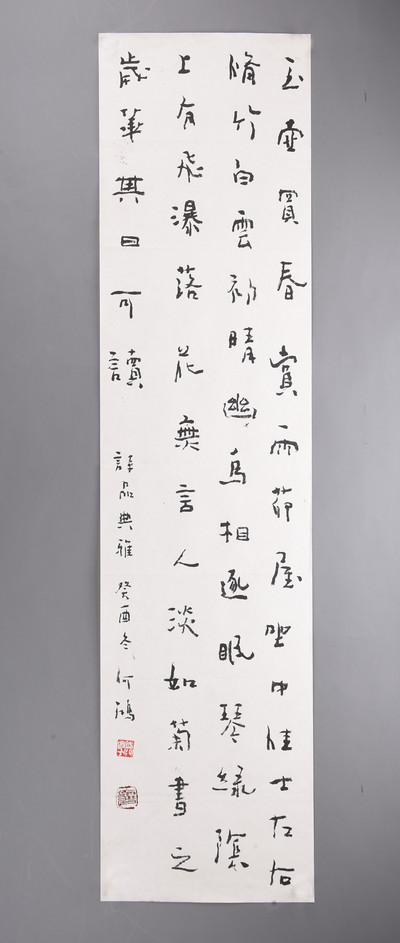 玉壶買春賞雨茆屋坐中佳士左右
脩竹白雲初晴幽鳥相逐眠琴緑陰
上有飛瀑落花無言人淡如菊書之
歲華其曰可讀
詩品典雅癸酉冬何鴻